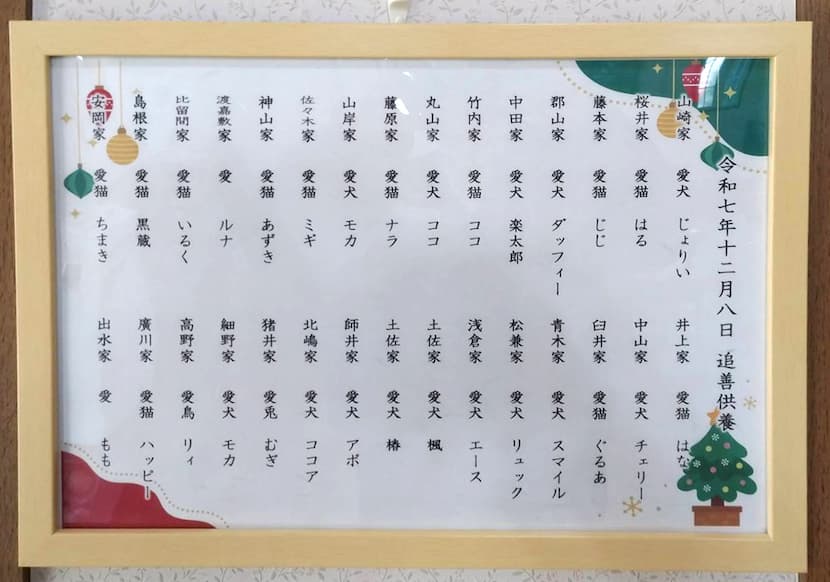 令和七年十二月八日 追善供養
山崎家 愛犬 じょりい
桜井家 愛猫 はる
藤本家 愛猫 じじ
郡山家 愛犬 ダッフィー
中田家 愛犬 楽太郎
竹内家 愛猫 ココ
丸山家 愛犬 ココ
藤原家 愛猫 ナラ
山岸家 愛犬 モカ
佐々木家 愛猫 ミギ
神山家 愛猫 あずき
渡嘉敷家 愛 ルナ
比留間家 愛猫 いるく
島根家 愛猫 黒蔵
安岡家 愛猫 ちまき
井上家 愛猫 はな
中山家 愛犬 チェリー
臼井家 愛猫 ぐるあ
青木家 愛犬 スマイル
松兼家 愛犬 リュック
浅倉家 愛犬 エース
土佐家 愛犬 楓
土佐家 愛犬 椿
師井家 愛犬 アポ
北嶋家 愛犬 ココア
猪井家 愛兎 むぎ
細野家 愛犬 モカ
高野家 愛鳥 リィ
廣川家 愛猫 ハッピー
出水家 愛 もも